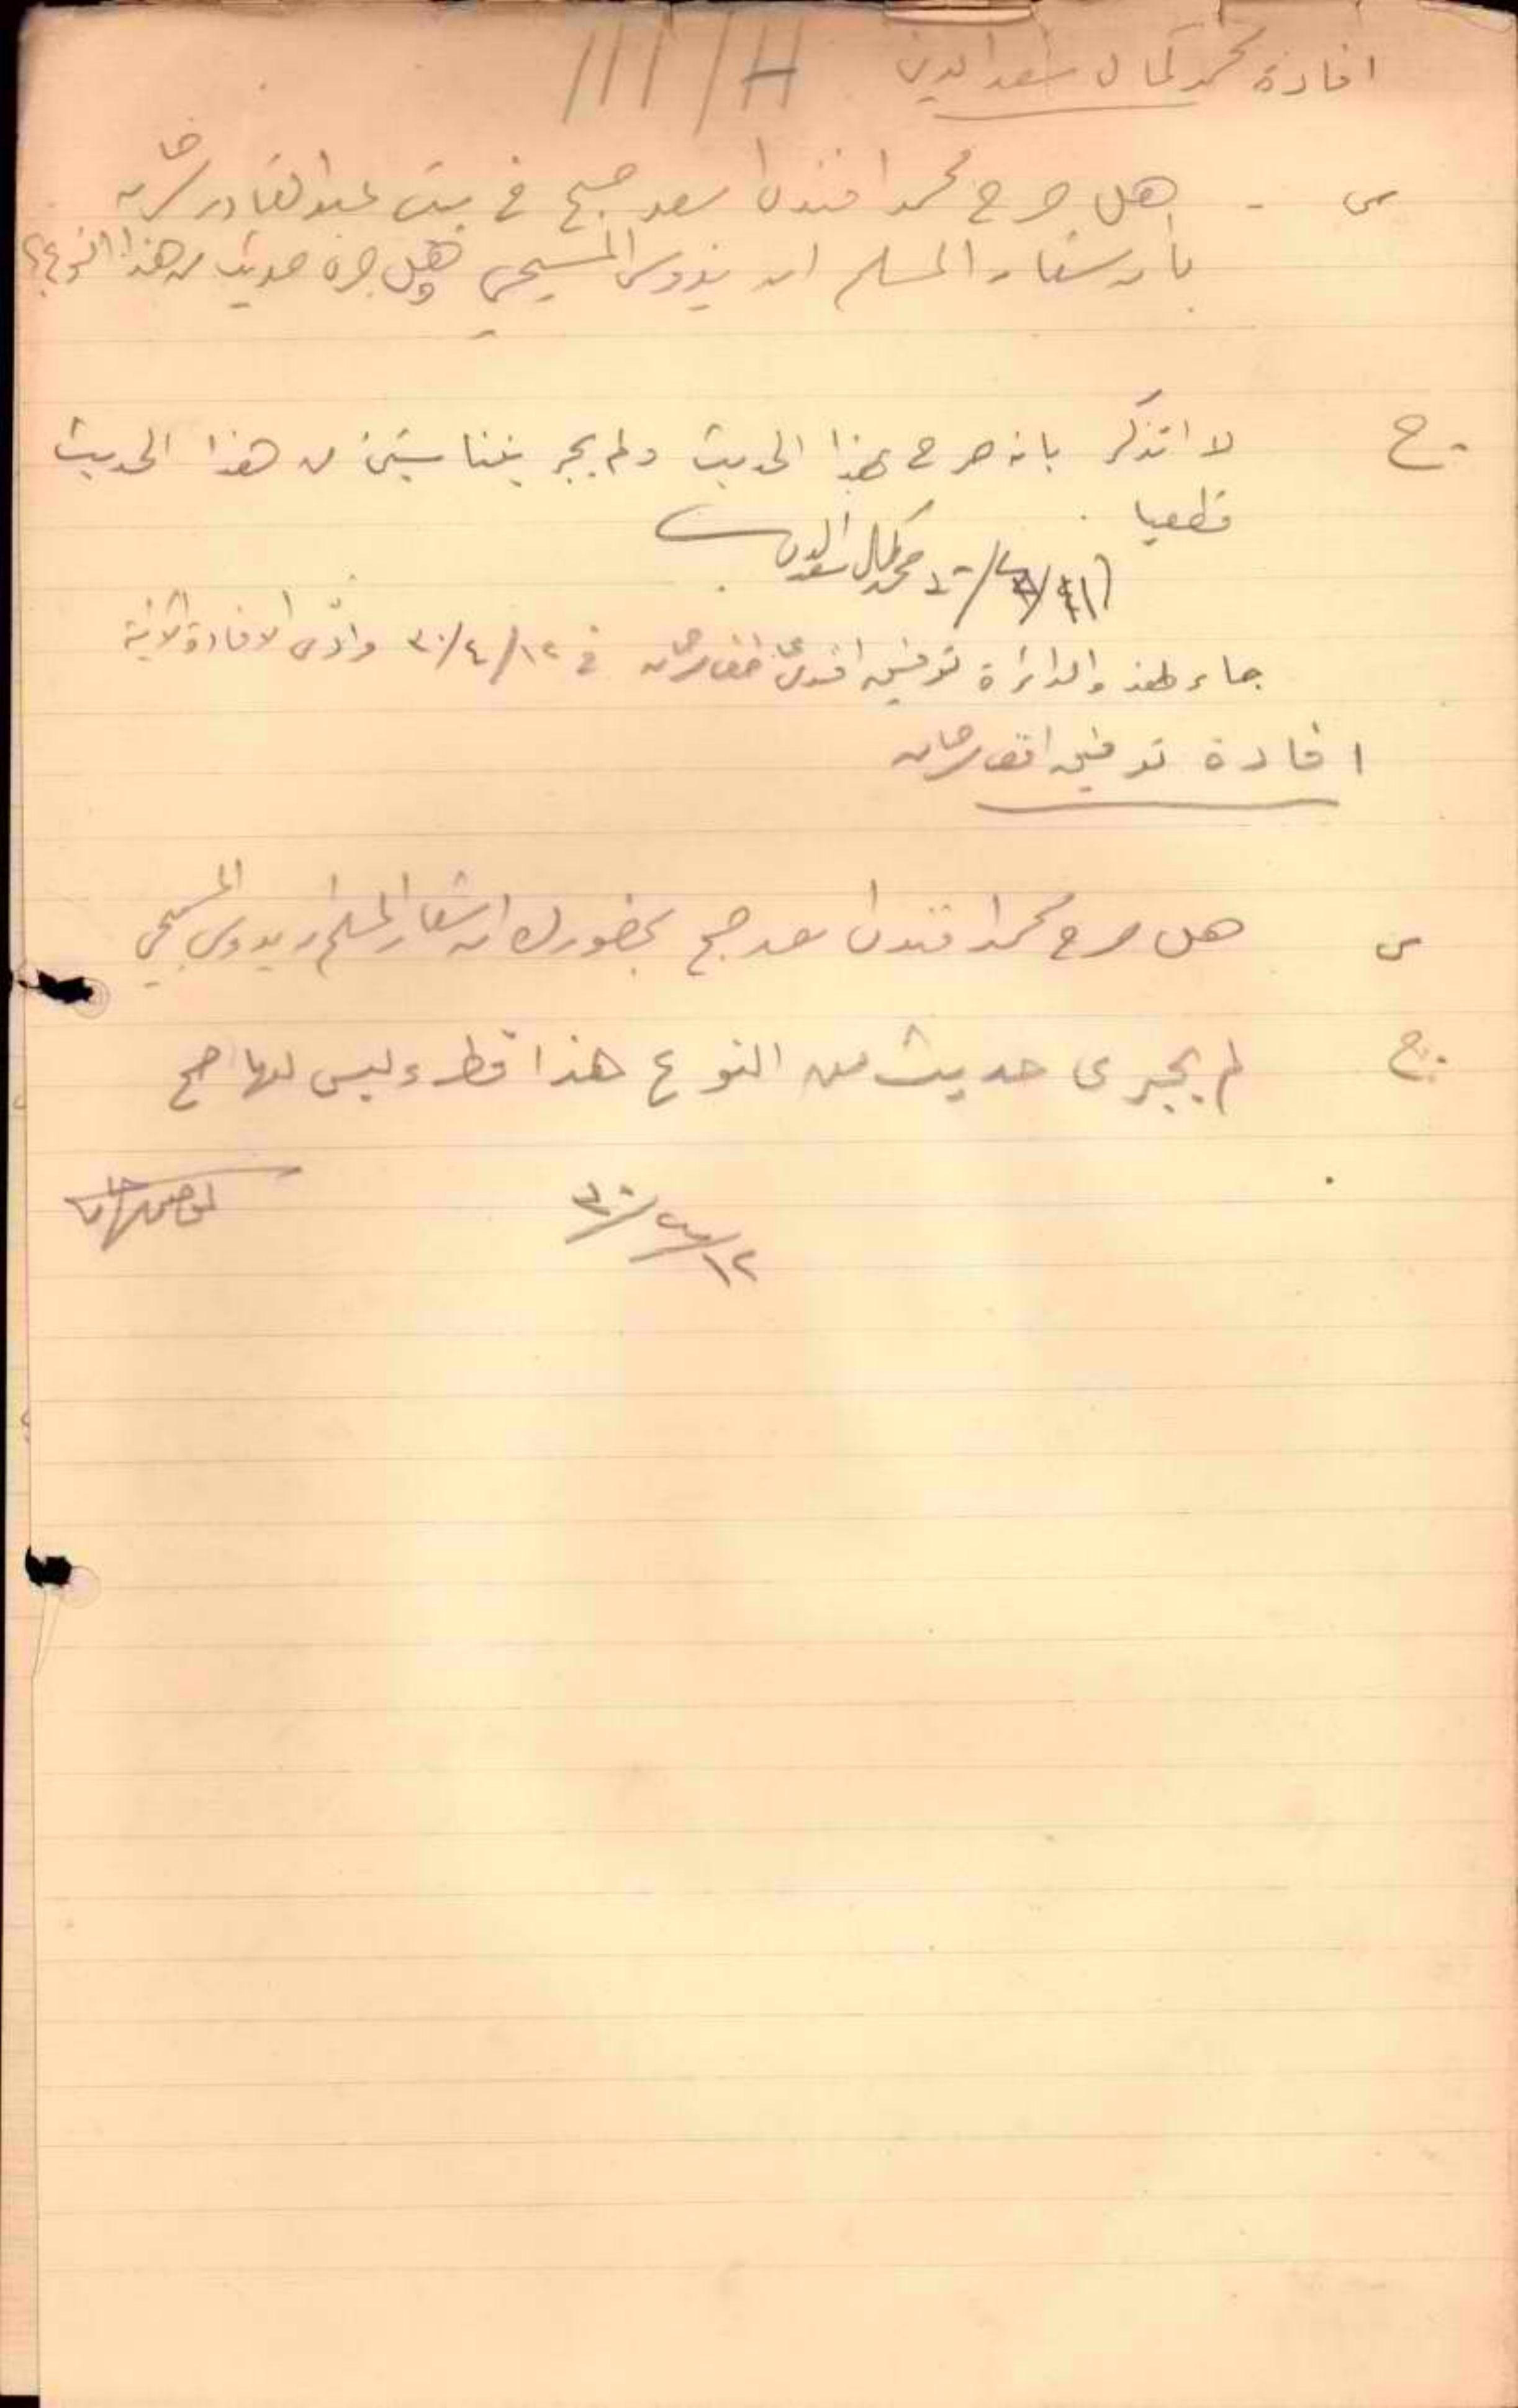 افادة محمد كمال سعد الدين 111/H
س - هل صرح محمد افندي اسعد صبح في بيت عبد القادر
بان شعار المسلم ان يدوس المسيحي وهل جرى حديث من هذا النوع؟
ج - لا اتذكر بانه صرح بهذا الحديث ولم يجر بيننا شيئ من هذا الحديث
قطعيا .
محمد كمال سعد الدين
جاء لهذه الدائرة توفيق افندي في ١٢/٤/٣٠ وادّى الافادة الآتية
افادة توفيق
س هل صرح محمد افندي اسعد صبح بحضورك ان شعار المسلم يدوس المسيحي
ج - لم يجرى حديث من النوع هذا قط وليس لها صح
١٢/٤/٣٠